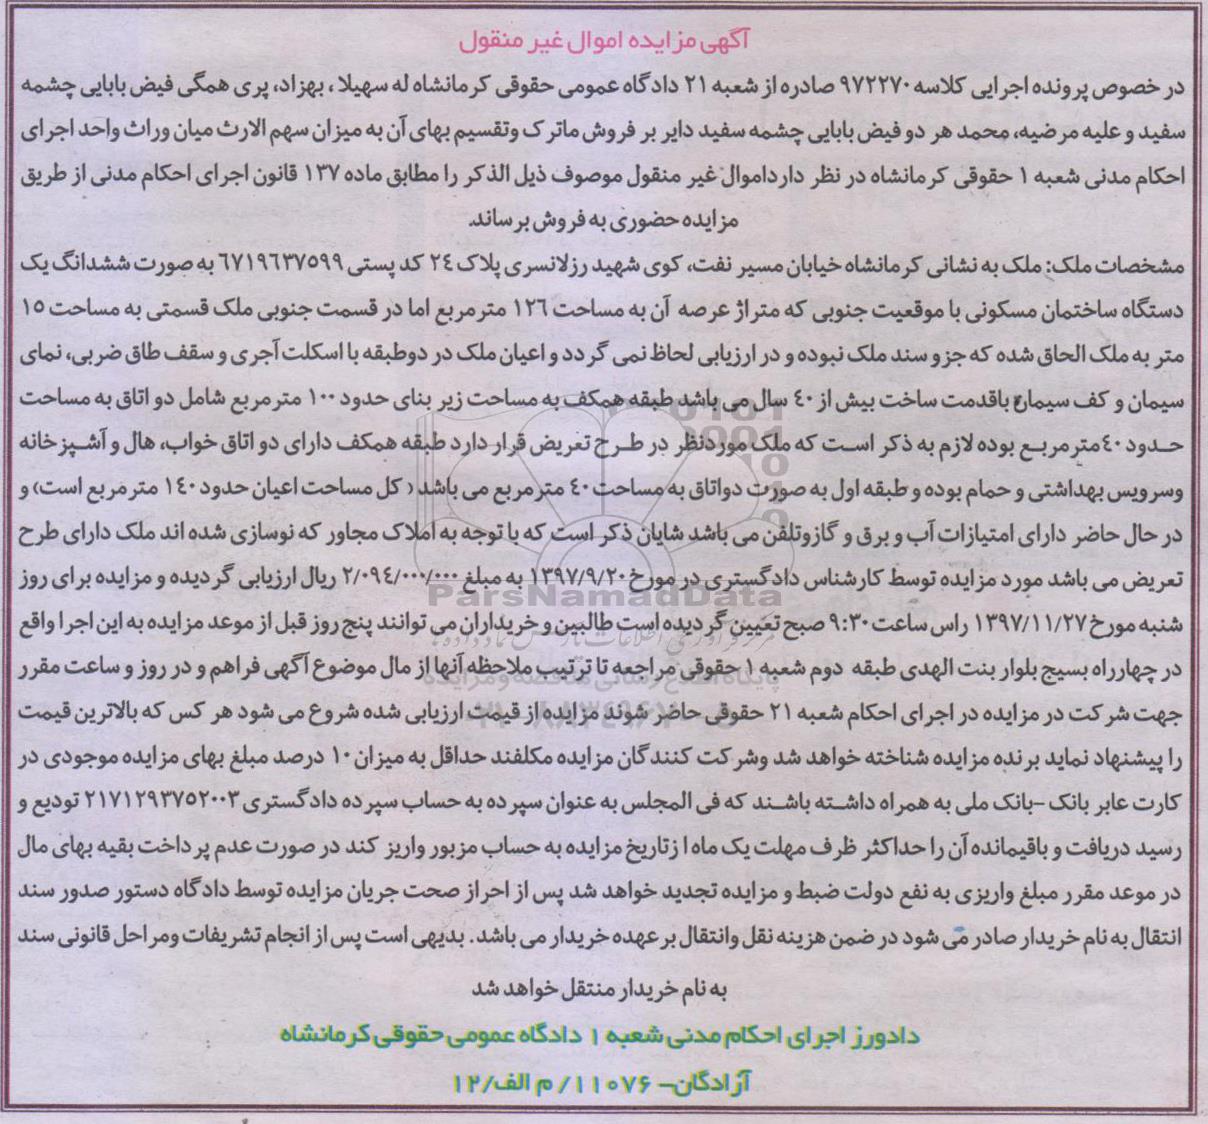 آگهی مزایده اموال غیر منقول
در خصوص پرونده اجرایی کلاسه ۹۷۲۲۷۰ صادره از شعبه ۲۱ دادگاه عمومی حقوقی کرمانشاه له سهیلا ، بهزاد، پری همگی فیض بابایی چشمه
سفید و علیه مرضیه، محمد هر دو فیض بابایی چشمه سفید دایر بر فروش ماترک وتقسیم بهای آن به میزان سهم الارث میان وراث واحد اجرای
احکام مدنی شعبه ۱ حقوقی کرمانشاه در نظر دارداموال غیر منقول موصوف ذیل الذکر را مطابق ماده ۱۳۷ قانون اجرای احکام مدنی از طریق
مزایده حضوری به فروش برساند.
مشخصات ملک: ملک به نشانی کرمانشاه خیابان مسیر نفت، کوی شهید رزلانسری پلاک ۲۴ کد پستی ۶۷۱۹۶۳۷۵۹۹ به صورت ششدانگ یک
دستگاه ساختمان مسکونی با موقعیت جنوبی که متراژ عرصه آن به مساحت ۱۲۶ مترمربع اما در قسمت جنوبی ملک قسمتی به مساحت ۱۵
متر به ملک الحاق شده که جزو سند ملک نبوده و در ارزیابی لحاظ نمی گردد و اعیان ملک در دوطبقه با اسکلت آجری و سقف طاق ضربی، نمای
سیمان و کف سیمان باقدمت ساخت بیش از ۴۰ سال می باشد طبقه همکف به مساحت زیر بنای حدود ۱۰۰ مترمربع شامل دو اتاق به مساحت
حدود ۴۰مترمربع بوده لازم به ذکر است که ملک موردنظر در طرح تعریض قرار دارد طبقه همکف دارای دو اتاق خواب، هال و آشپزخانه
وسرویس بهداشتی و حمام بوده و طبقه اول به صورت دواتاق به مساحت ۴۰ مترمربع می باشد ( کل مساحت اعیان حدود ۱۴۰ مترمربع است) و
در حال حاضر دارای امتیازات آب و برق و گازوتلفن می باشد شایان ذکر است که با توجه به املاک مجاور که نوسازی شده اند ملک دارای طرح
تعریض می باشد مورد مزایده توسط کارشناس دادگستری در مورخ ۱۳۹۷/۹/۲۰ به مبلغ ۲/۰۹۴/۰۰۰/۰۰۰ ریال ارزیابی گردیده و مزایده برای روز
شنبه مورخ ۱۳۹۷/۱۱/۲۷ راس ساعت ۹:۳۰ صبح تعیین گردیده است طالبین و خریداران می توانند پنج روز قبل از موعد مزایده به این اجرا واقع
در چهارراه بسیج بلوار بنت الهدی طبقه دوم شعبه ۱ حقوقی مراجعه تا ترتیب ملاحظه آنها از مال موضوع آگهی فراهم و در روز و ساعت مقرر
جهت شرکت در مزایده در اجرای احکام شعبه ۲۱ حقوقی حاضر شوند مزایده از قیمت ارزیابی شده شروع می شود هر کس که بالاترین قیمت
را پیشنهاد نماید برنده مزایده شناخته خواهد شد وشرکت کنندگان مزایده مکلفند حداقل به میزان ۱۰ درصد مبلغ بهای مزایده موجودی در
کارت عابر بانک -بانک ملی به همراه داشته باشند که فی المجلس به عنوان سپرده به حساب سپرده دادگستری ۲۱۷۱۲۹۳۷۵۲۰۰۳ تودیع و
رسید دریافت و باقیمانده آن را حداکثر ظرف مهلت یک ماه ا زتاریخ مزایده به حساب مزبور واریز کند در صورت عدم پرداخت بقیه بهای مال
در موعد مقرر مبلغ واریزی به نفع دولت ضبط و مزایده تجدید خواهد شد پس از احراز صحت جریان مزایده توسط دادگاه دستور صدور سند
انتقال به نام خریدار صادر می شود در ضمن هزینه نقل وانتقال بر عهده خریدار می باشد. بدیهی است پس از انجام تشریفات ومراحل قانونی سند
به نام خریدار منتقل خواهد شد
دادورز اجرای احکام مدنی شعبه ۱ دادگاه عمومی حقوقی کرمانشاه
آزادگان- ۱۱۰۷۶/ م الف/۱۲
ParsNamadData